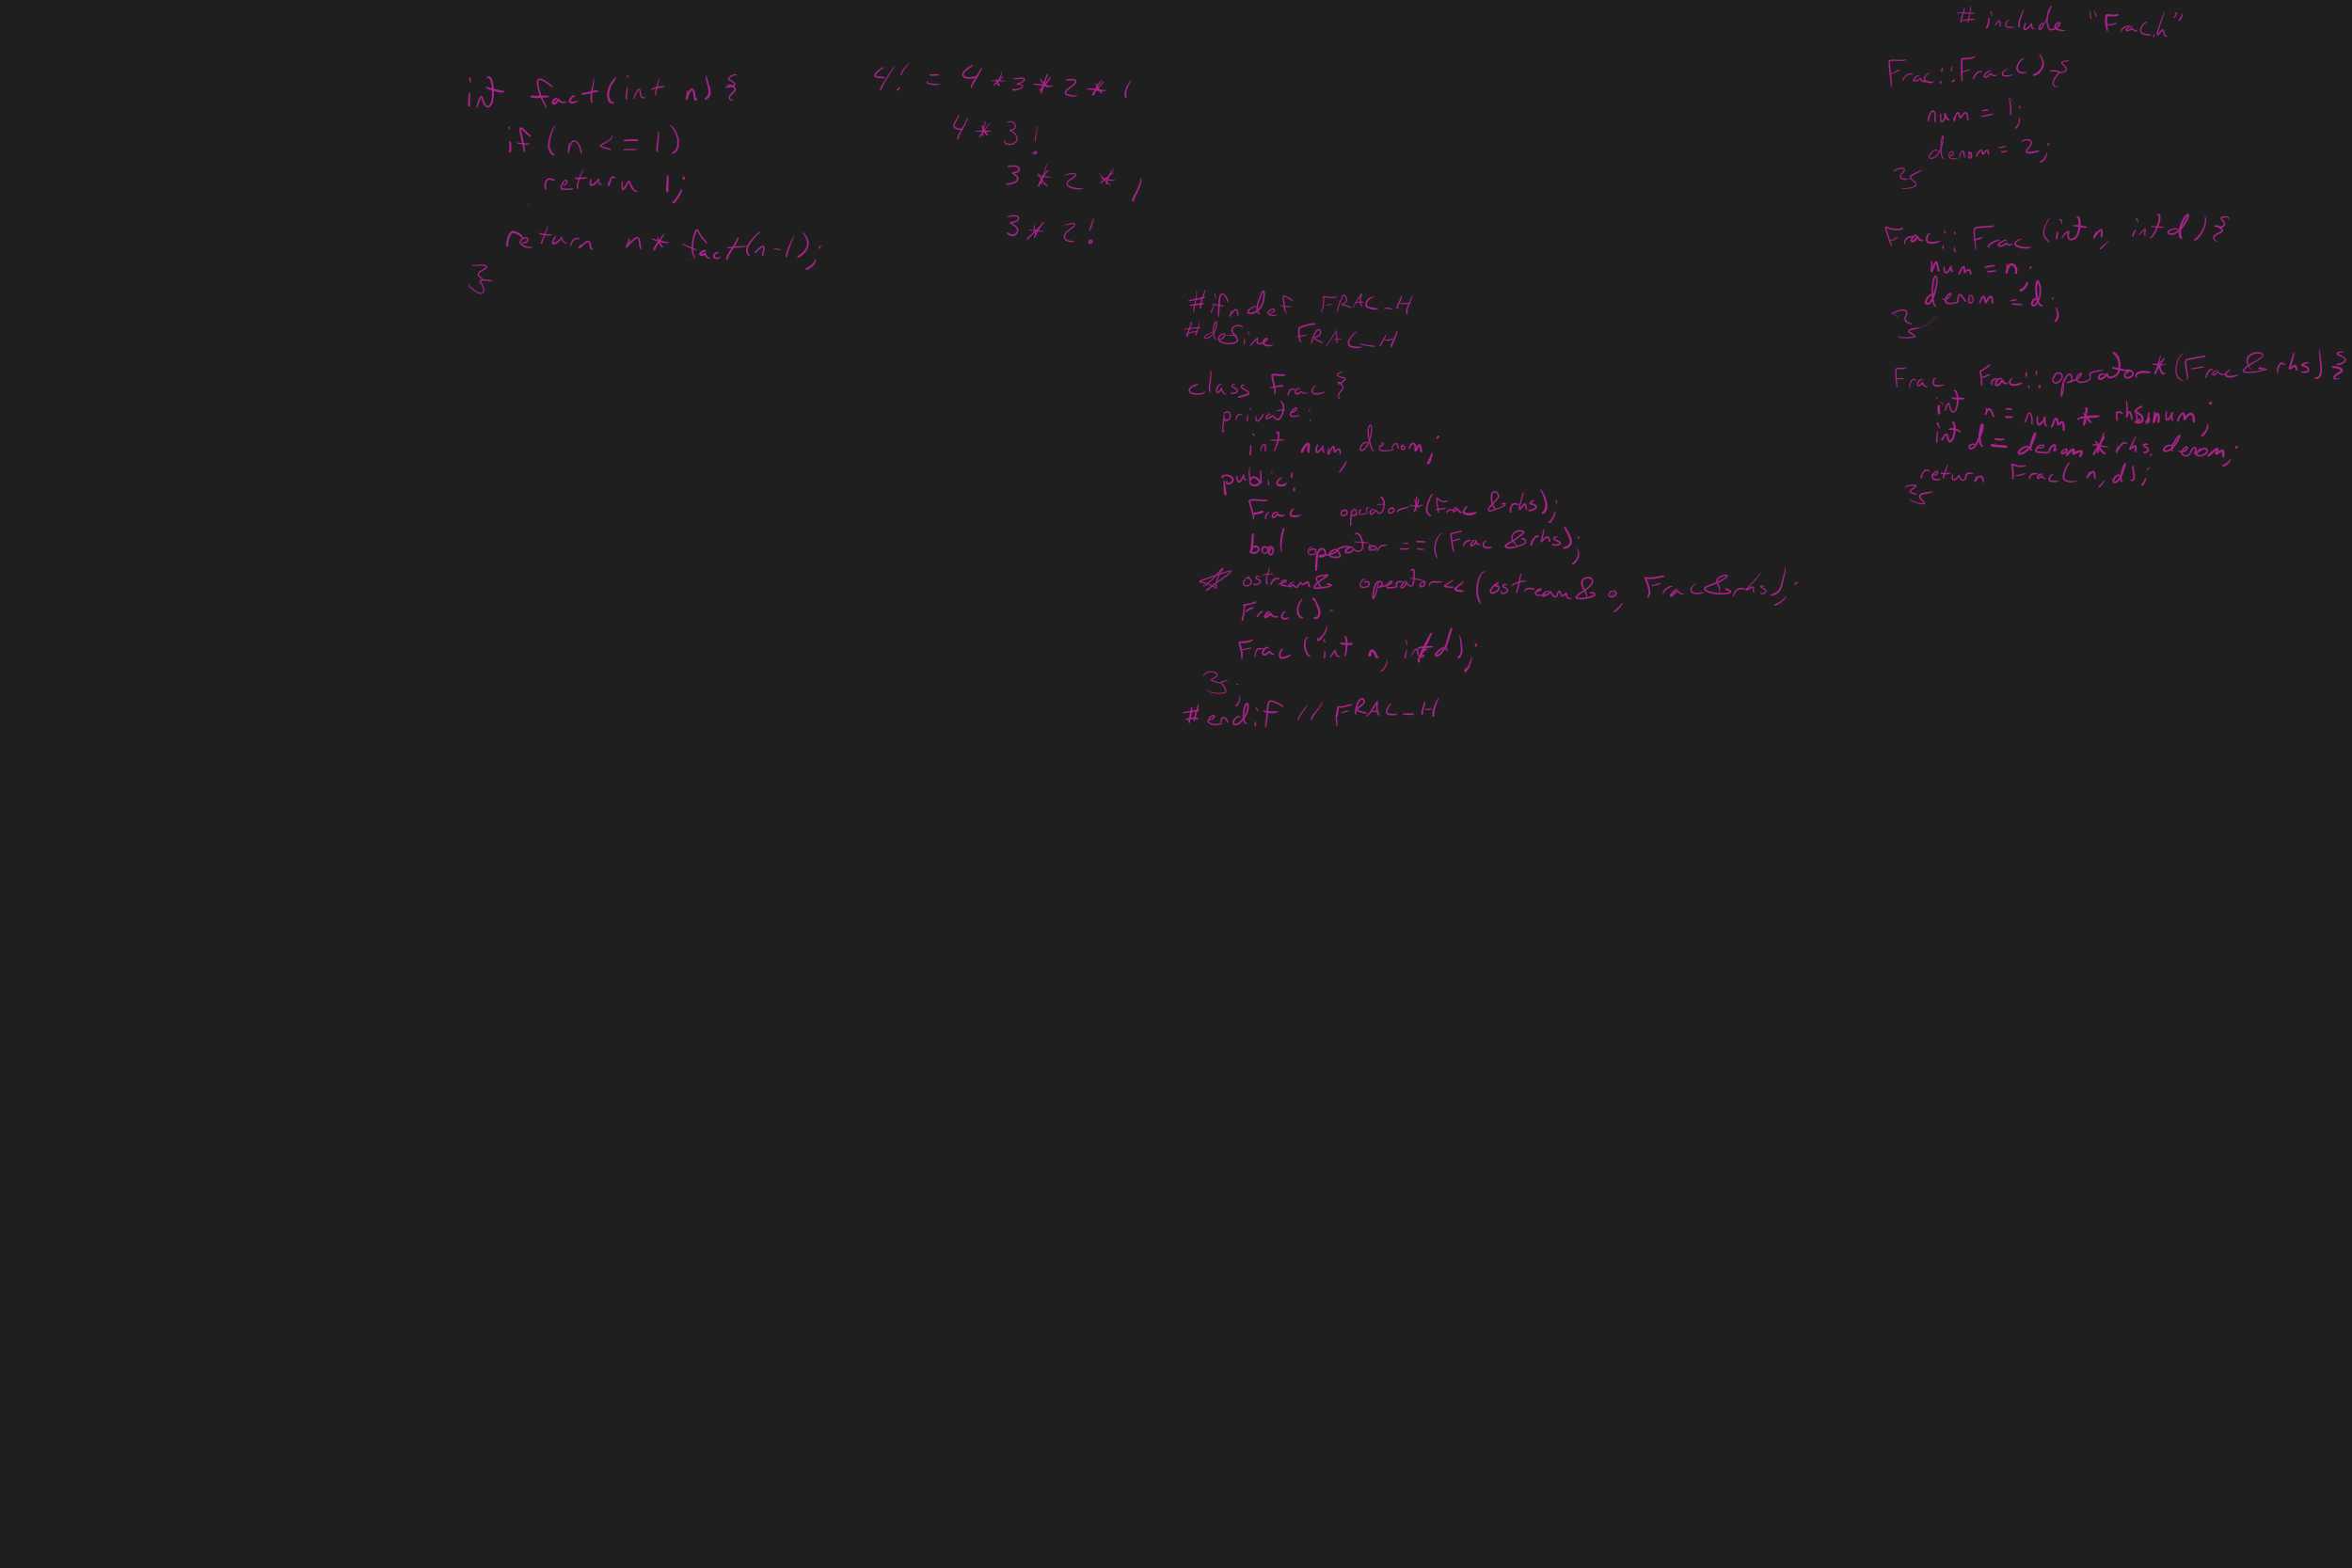 int fact(int n) {
if (n <= 1)
return 1;
return n * fact(n-1);
}
4! = 4 * 3 * 2 * 1
4 * 3!
3 * 2 * 1
3 * 2!
#ifndef FRAC_H
#define FRAC_H
class Frac {
private:
int num, denom;
public:
Frac operator*(Frac &rhs);
bool operator==(Frac &rhs);
ostream& operator<<(ostream& o, Frac&rhs);
Frac();
Frac(int n, int d);
};
#endif // FRAC_H
#include "Frac.h"
Frac::Frac() {
num = 1;
denom = 2;
}
Frac::Frac(int n, int d) {
num = n;
denom = d;
}
Frac Frac::operator*(Frac& rhs) {
int n = num * rhs.num;
int d = denom * rhs.denom;
return Frac(n,d);
}